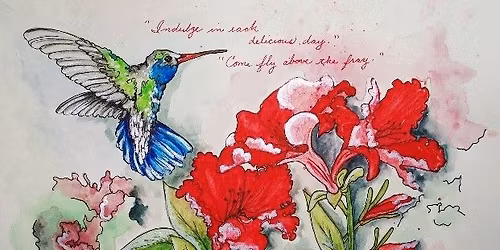 "Indulge in each
delicious day."
"Come fly above the fray."